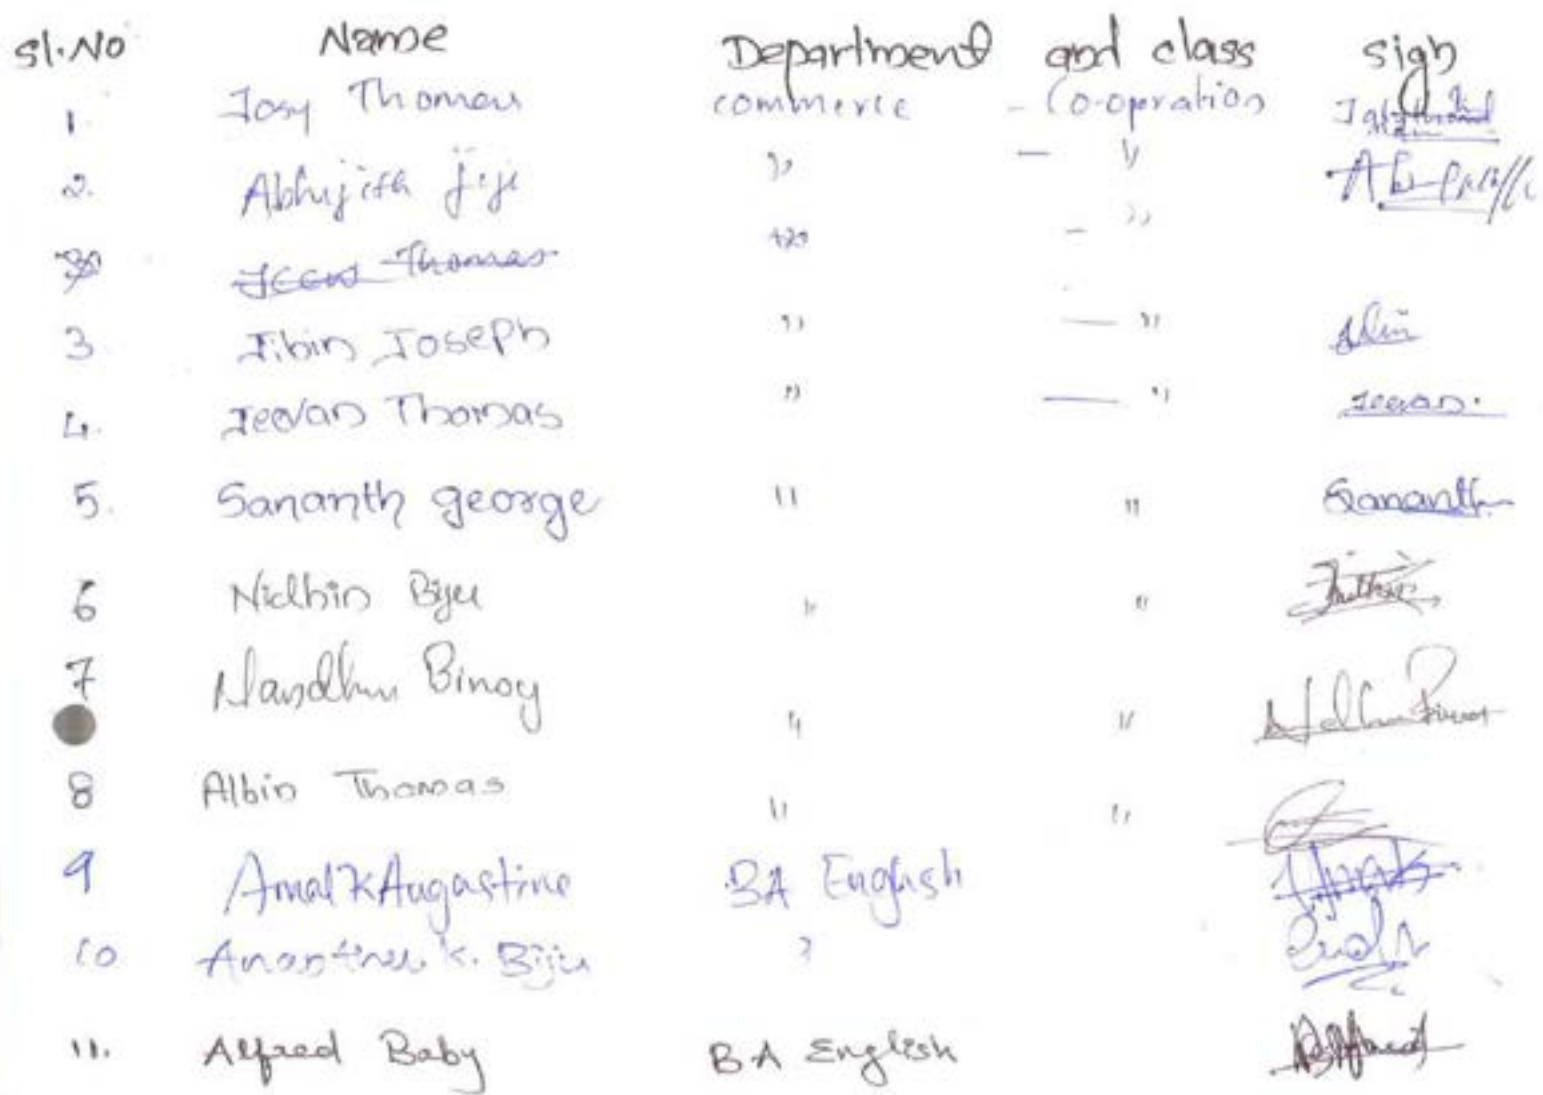 Sl.No Name Department and class Sign
1. Josy Thomas commerce - Co-operation
2. Abhijith Jiji " — "
Thomas " - "
3. Jibin Joseph " — "
4. Jeevan Thomas " — " Jeevan.
5. Sananth george " " Sananth
6 Nidhin Biju " "
7 Nandhu Binoy " "
8 Albin Thomas " "
9 Amal K Augastine BA English
10 K. Biju "
11. Alfred Baby BA English